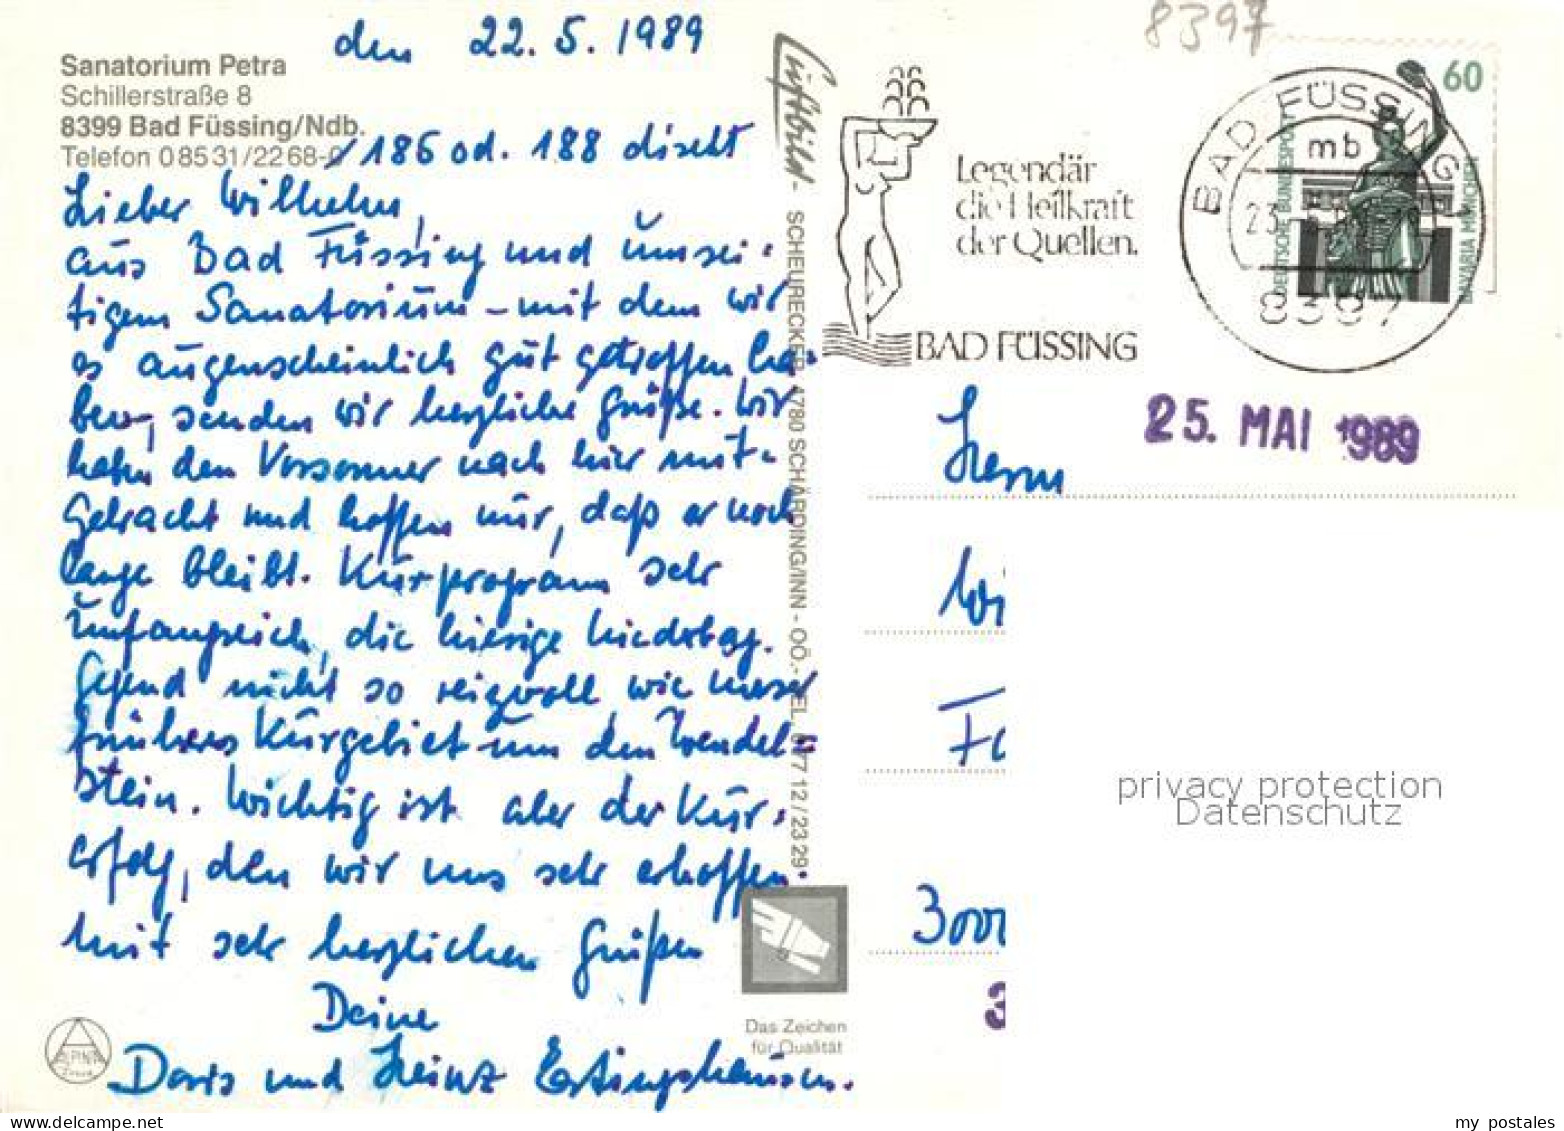 8397
den 22. 5. 1989
Sanatorium Petra
Schillerstraße 8
8399 Bad Füssing/Ndb.
Telefon 0 85 31 / 22 68-0 / 186 od. 188 direkt
Lieber Wilhelm,
aus Bad Füssing und umsei-
tigem Sanatorium – mit dem wir
es augenscheinlich gut getroffen ha-
ben, senden wir herzliche Grüße. Wir
haben den Vorsommer nach hier mit-
gebracht und hoffen nur, daß er noch
lange bleibt. Kurprogramm sehr
umfangreich, die hiesige niederbay.
Gegend nicht so reizvoll wie unser
früheres Kurgebiet um den Wendel=
stein. Wichtig ist aber der Kur-
erfolg, den wir uns sehr erhoffen.
Mit sehr herzlichen Grüßen
Deine
Doris und Heinz Ertingshausen.
Luftbild -
SCHEURECKER, 4780 SCHÄRDING/INN - OÖ. - TEL. 077 12 / 23 29
Das Zeichen
für Qualität
Legendär
die Heilkraft
der Quellen.
BAD FÜSSING
BAD FÜSSING
mb
23.
8397
60
DEUTSCHE BUNDESPOST
BAVARIA MÜNCHEN
25. MAI 1989
Herrn
Wi
privacy protection
Datenschutz
my postales